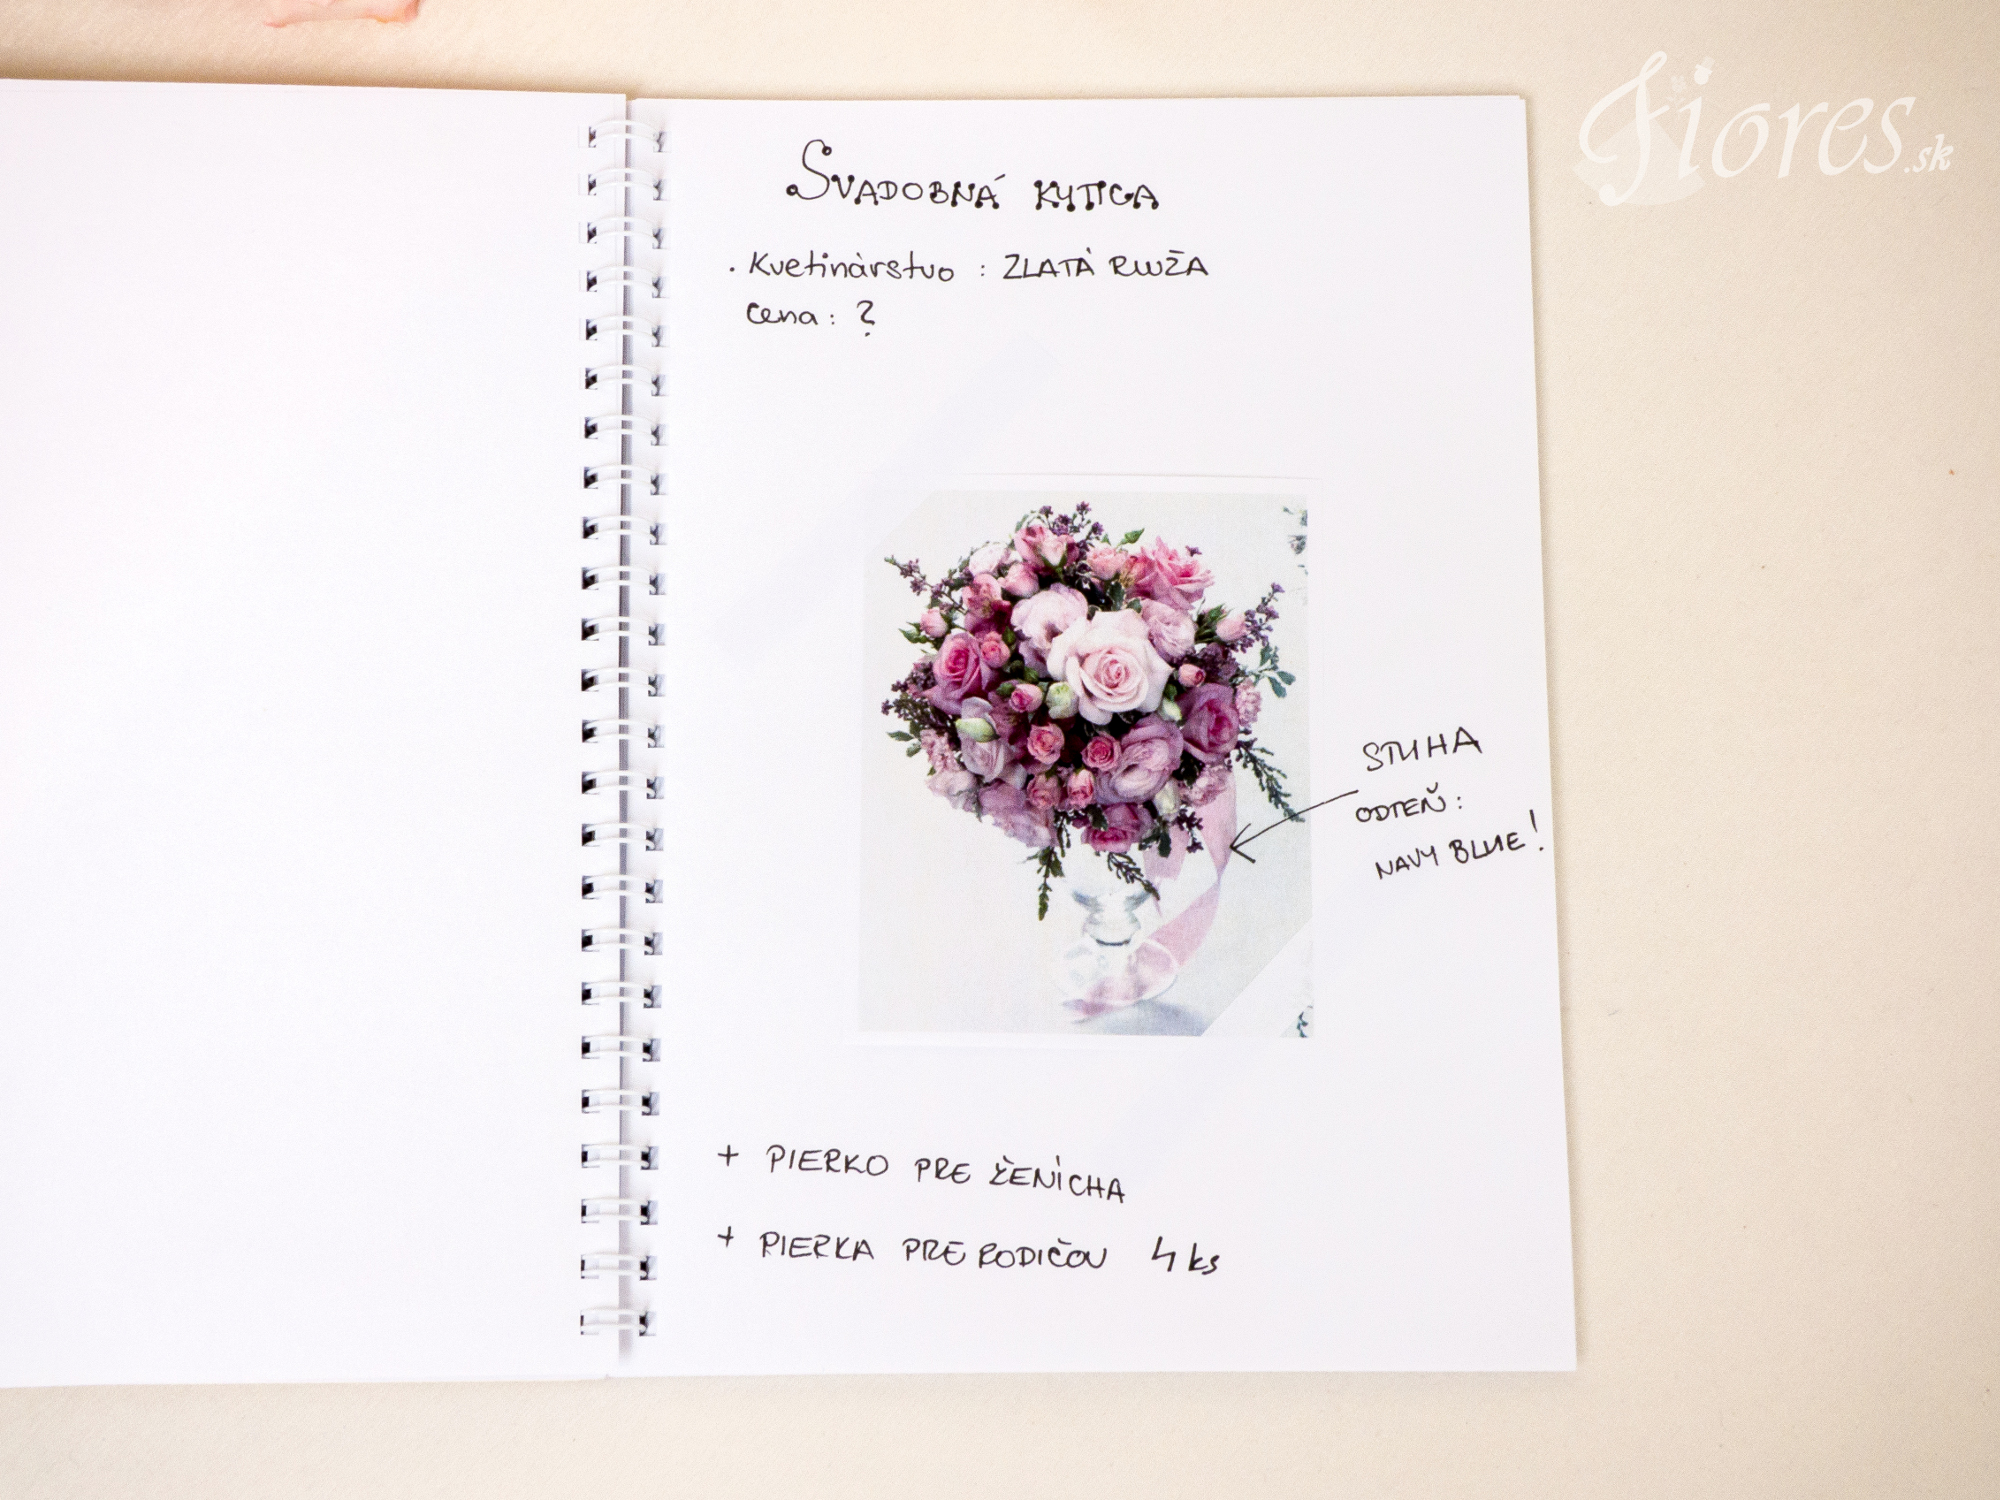 Fiores.sk
SVADOBNÁ KYTICA
· Kvetinárstvo : ZLATÁ RUŽA
Cena : ?
STUHA
ODTEŇ :
NAVY BLUE!
+ PIERKO PRE ŽENÍCHA
+ PIERKA PRE RODIČOV 4 ks